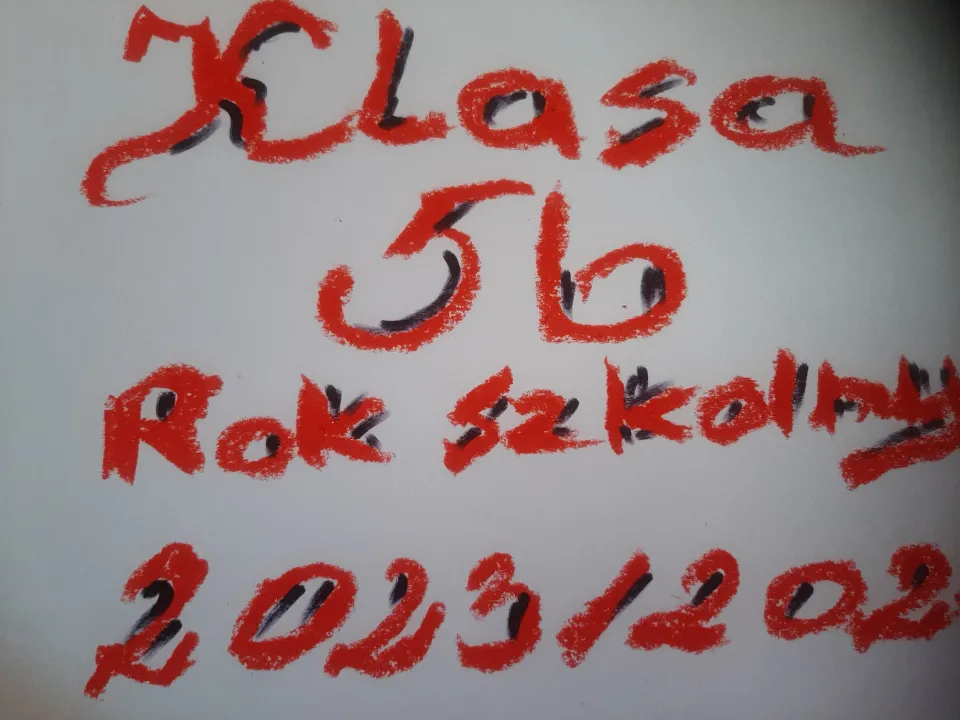 Klasa
5b
Rok szkolny
2023/202